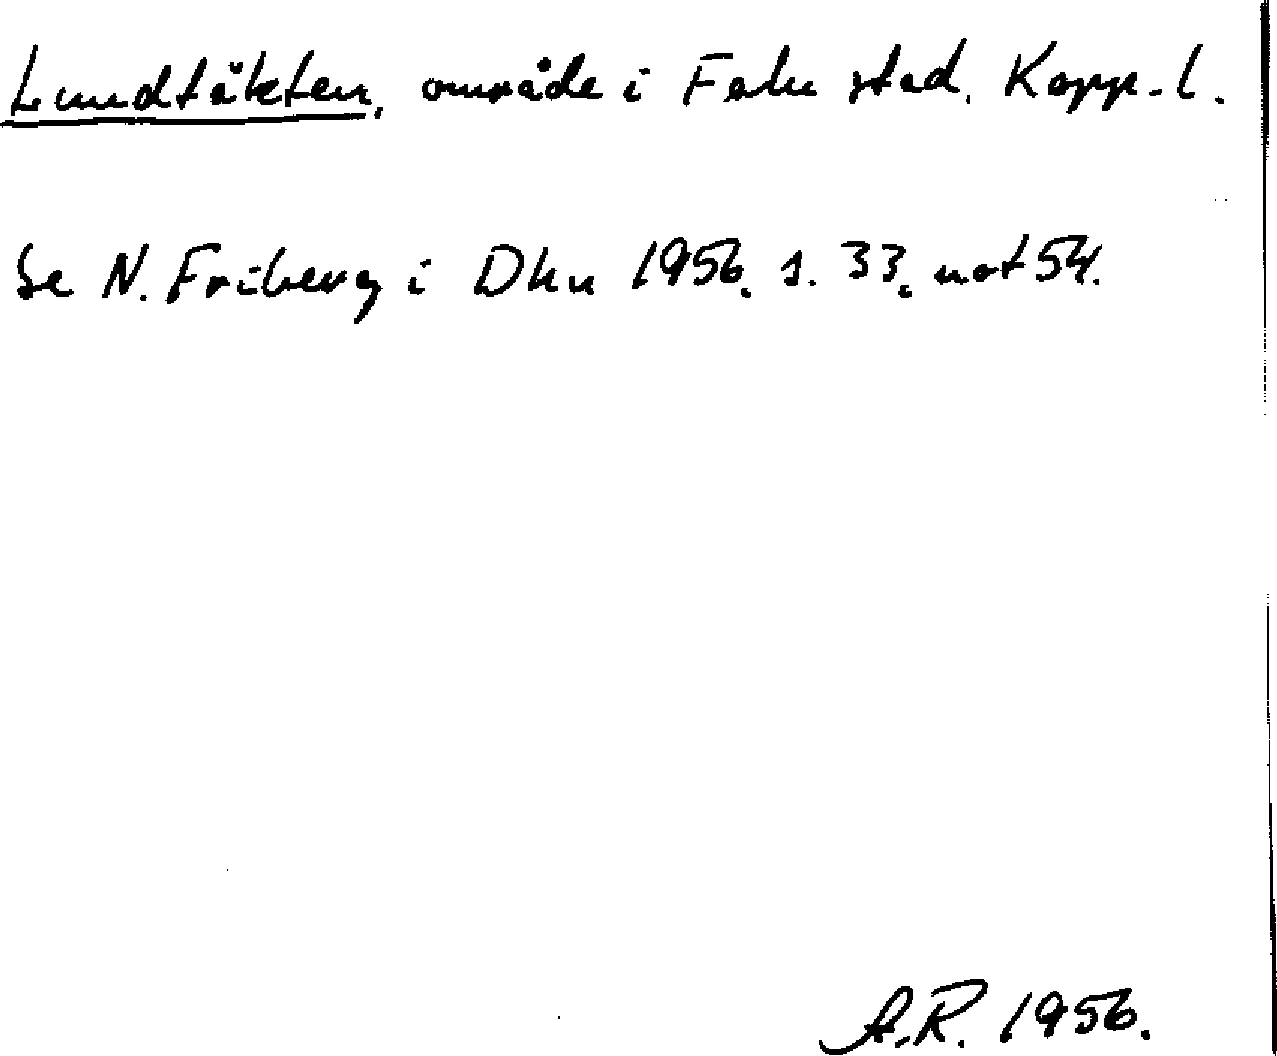 Lundtäkten, område i Falu stad, Kopp. l.
Se N. Friberg i Dhn 1956, s. 33, not 54.
A.R. 1956.